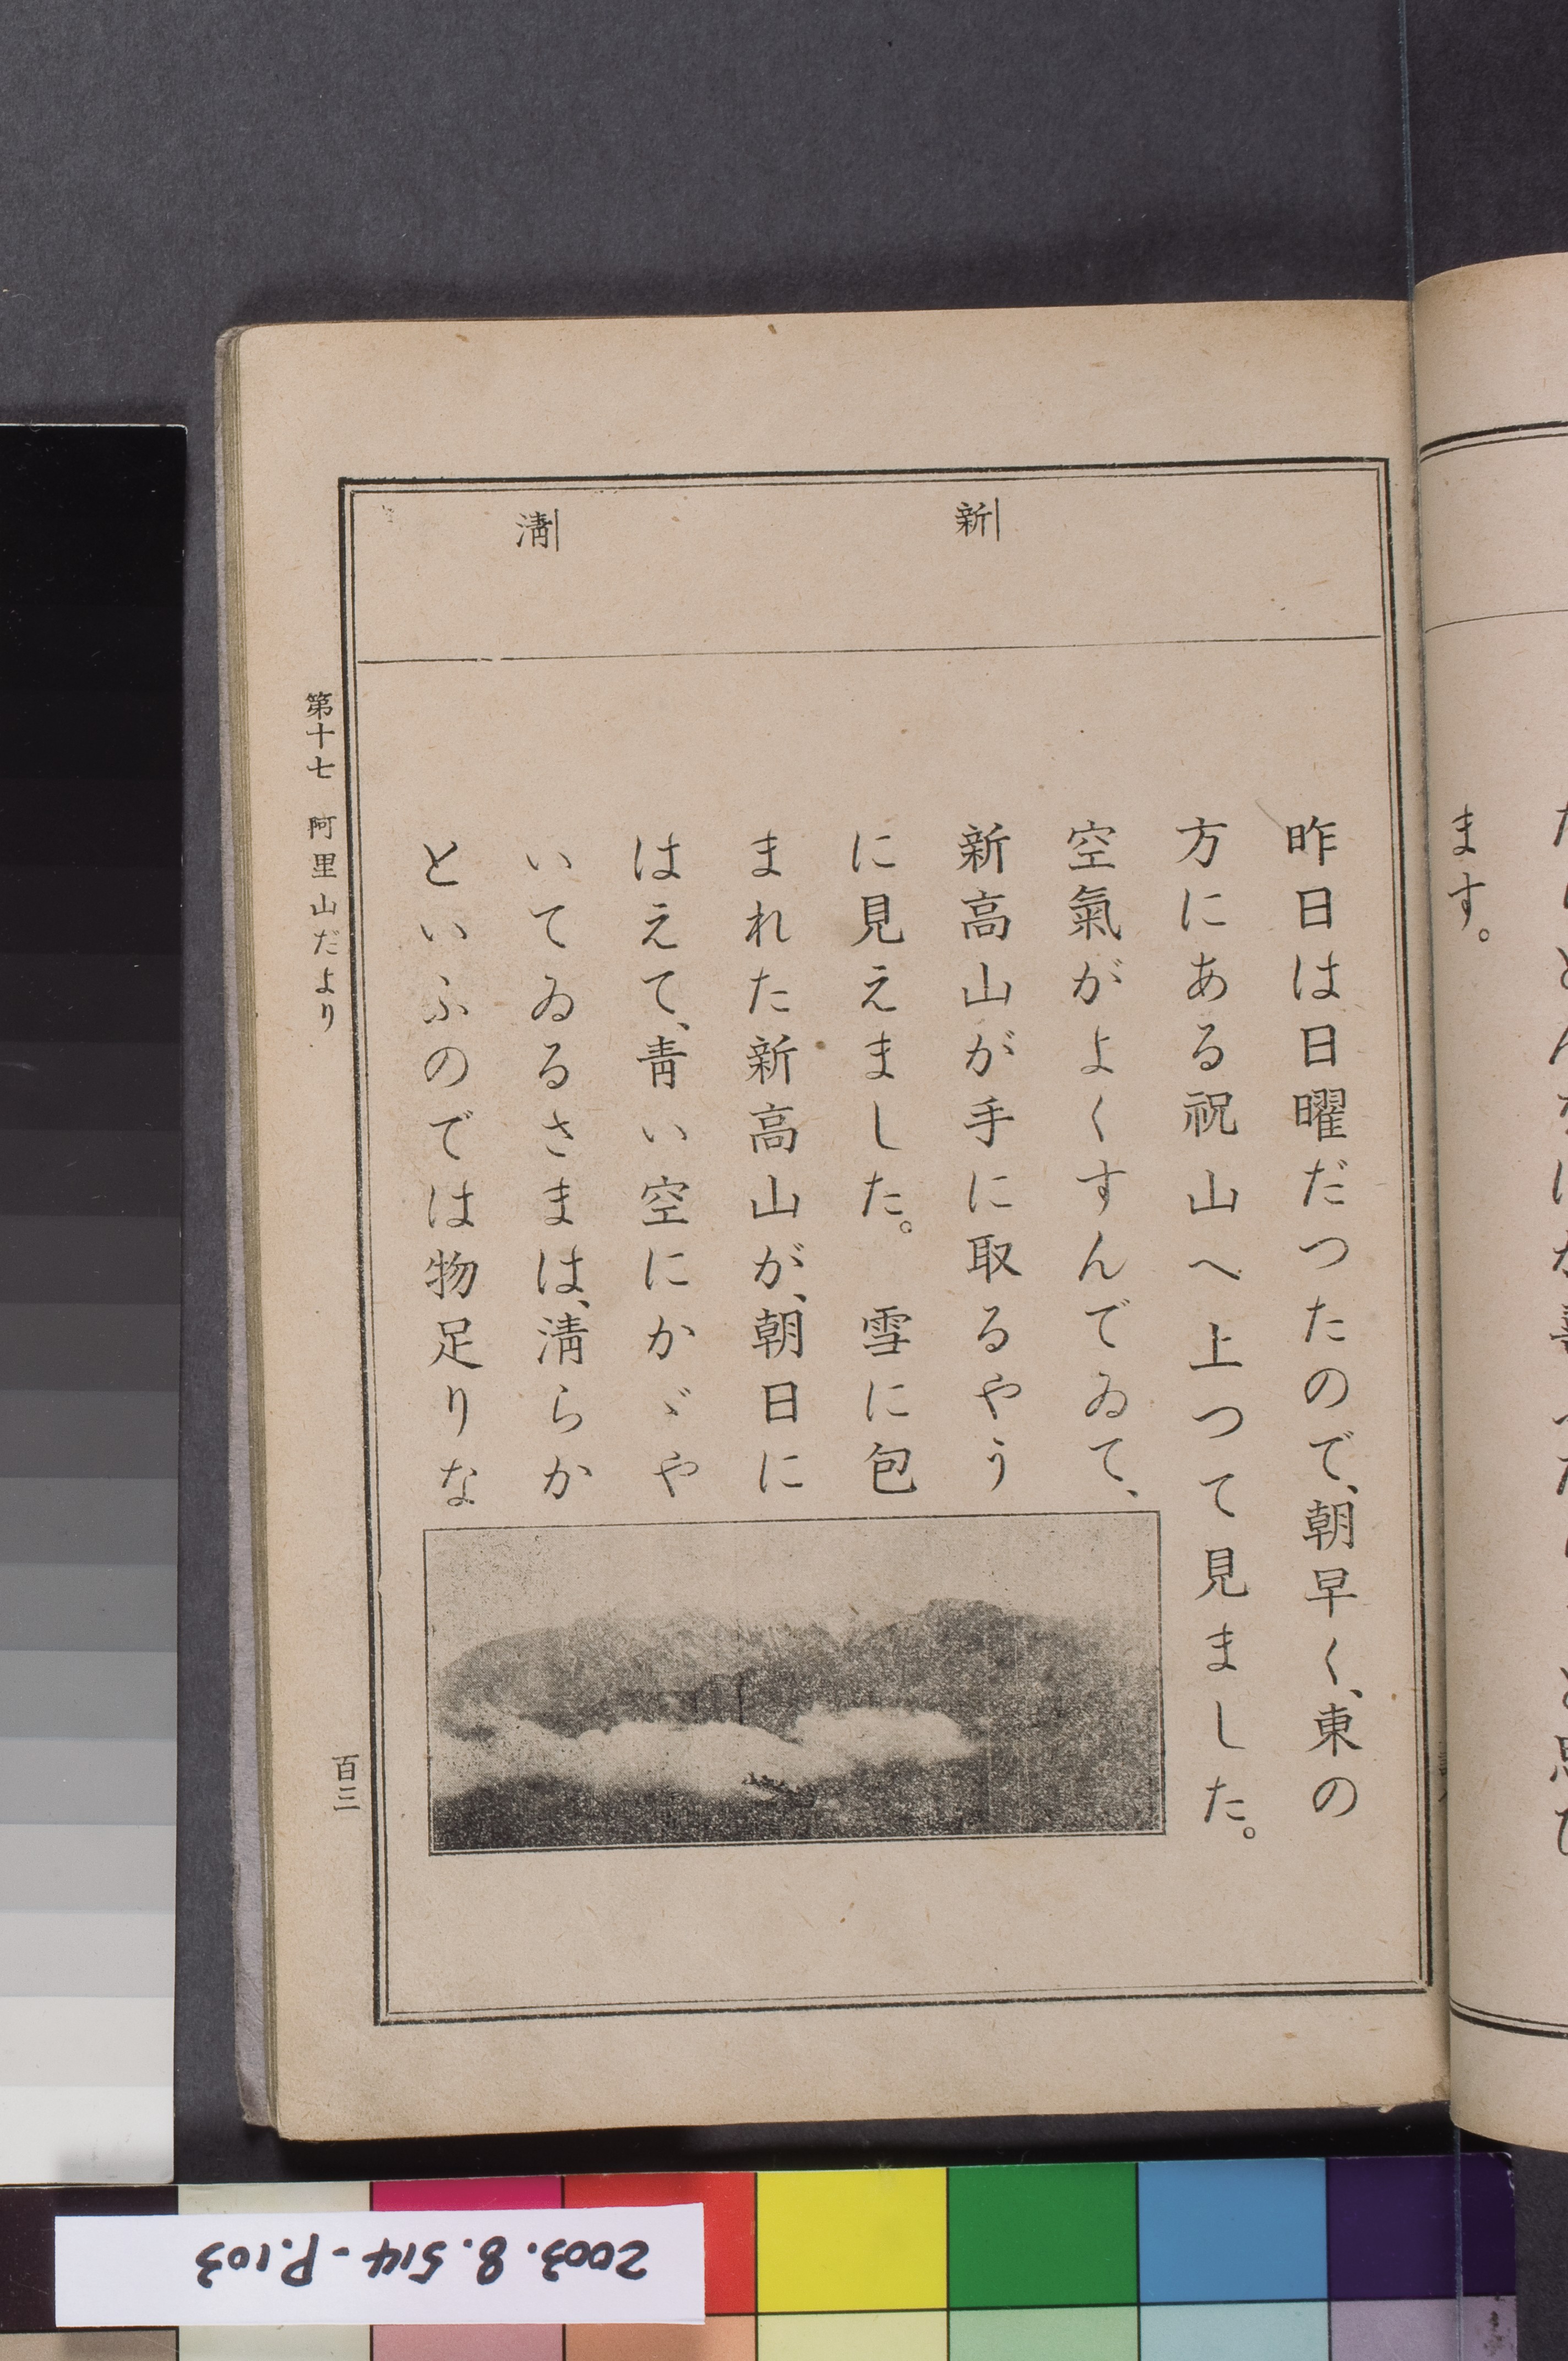 ます。
新
清
昨日は日曜だつたので、朝早く、東の
方にある祝山へ上つて見ました。
空氣がよくすんでゐて、
新高山が手に取るやう
に見えました。　雪に包
まれた新高山が、朝日に
はえて、靑い空にかゞや
いてゐるさまは、淸らか
といふのでは物足りな
第十七　阿里山だより
百三
2003.8.514-P.103